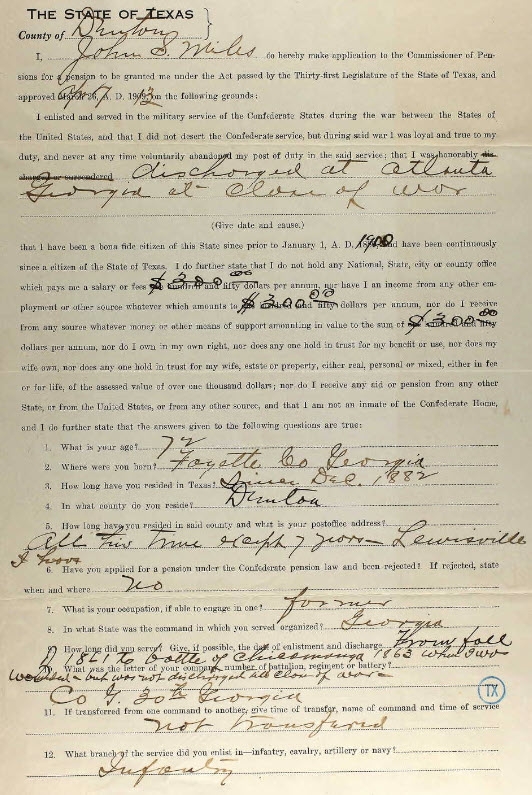 THE STATE OF TEXAS
County of Denton }
I, John S Miles do hereby make application to the Commissioner of Pen-
sions for a pension to be granted me under the Act passed by the Thirty-first Legislature of the State of Texas, and
approved March 26, A. D. 1909, on the following grounds:
I enlisted and served in the military service of the Confederate States during the war between the States of
the United States, and that I did not desert the Confederate service, but during said war I was loyal and true to my
duty, and never at any time voluntarily abandoned my post of duty in the said service; that I was honorably dis-
charged or surrendered discharged at Atlanta
Georgia at Close of wor
(Give date and cause.)
that I have been a bona fide citizen of this State since prior to January 1, A. D. 1900, and have been continuously
since a citizen of the State of Texas. I do further state that I do not hold any National, State, city or county office
which pays me a salary or fees $300.00 hundred and fifty dollars per annum, nor have I an income from any other em-
ployment or other source whatever which amounts to $300.00 hundred and fifty dollars per annum, nor do I receive
from any source whatever money or other means of support amounting in value to the sum of $300.00 hundred and fifty
dollars per annum, nor do I own in my own right, nor does any one hold in trust for my benefit or use, nor does my
wife own, nor does any one hold in trust for my wife, estate or property, either real, personal or mixed, either in fee
or for life, of the assessed value of over one thousand dollars; nor do I receive any aid or pension from any other
State, or from the United States, or from any other source, and that I am not an inmate of the Confederate Home,
and I do further state that the answers given to the following questions are true:
1. What is your age? 72
2. Where were you born? Fayette Co Georgia
3. How long have you resided in Texas? Since Dec. 1882
4. In what county do you reside? Denton
5. How long have you resided in said county and what is your postoffice address?
All this time except 7 years - Lewisville
6. Have you applied for a pension under the Confederate pension law and been rejected? If rejected, state
when and where no
7. What is your occupation, if able to engage in one? farmer
8. In what State was the command in which you served organized? Georgia
9. How long did you serve? Give, if possible, the date of enlistment and discharge. From fall
1861 to battle of Chicamauga 1863 when I was
10. What was the letter of your company, number of battalion, regiment or battery?
wounded - but was not discharged till close of war -
Co G. 30th Georgia
TX
11. If transferred from one command to another, give time of transfer, name of command and time of service
not transfered
12. What branch of the service did you enlist in—infantry, cavalry, artillery or navy?
Infantry